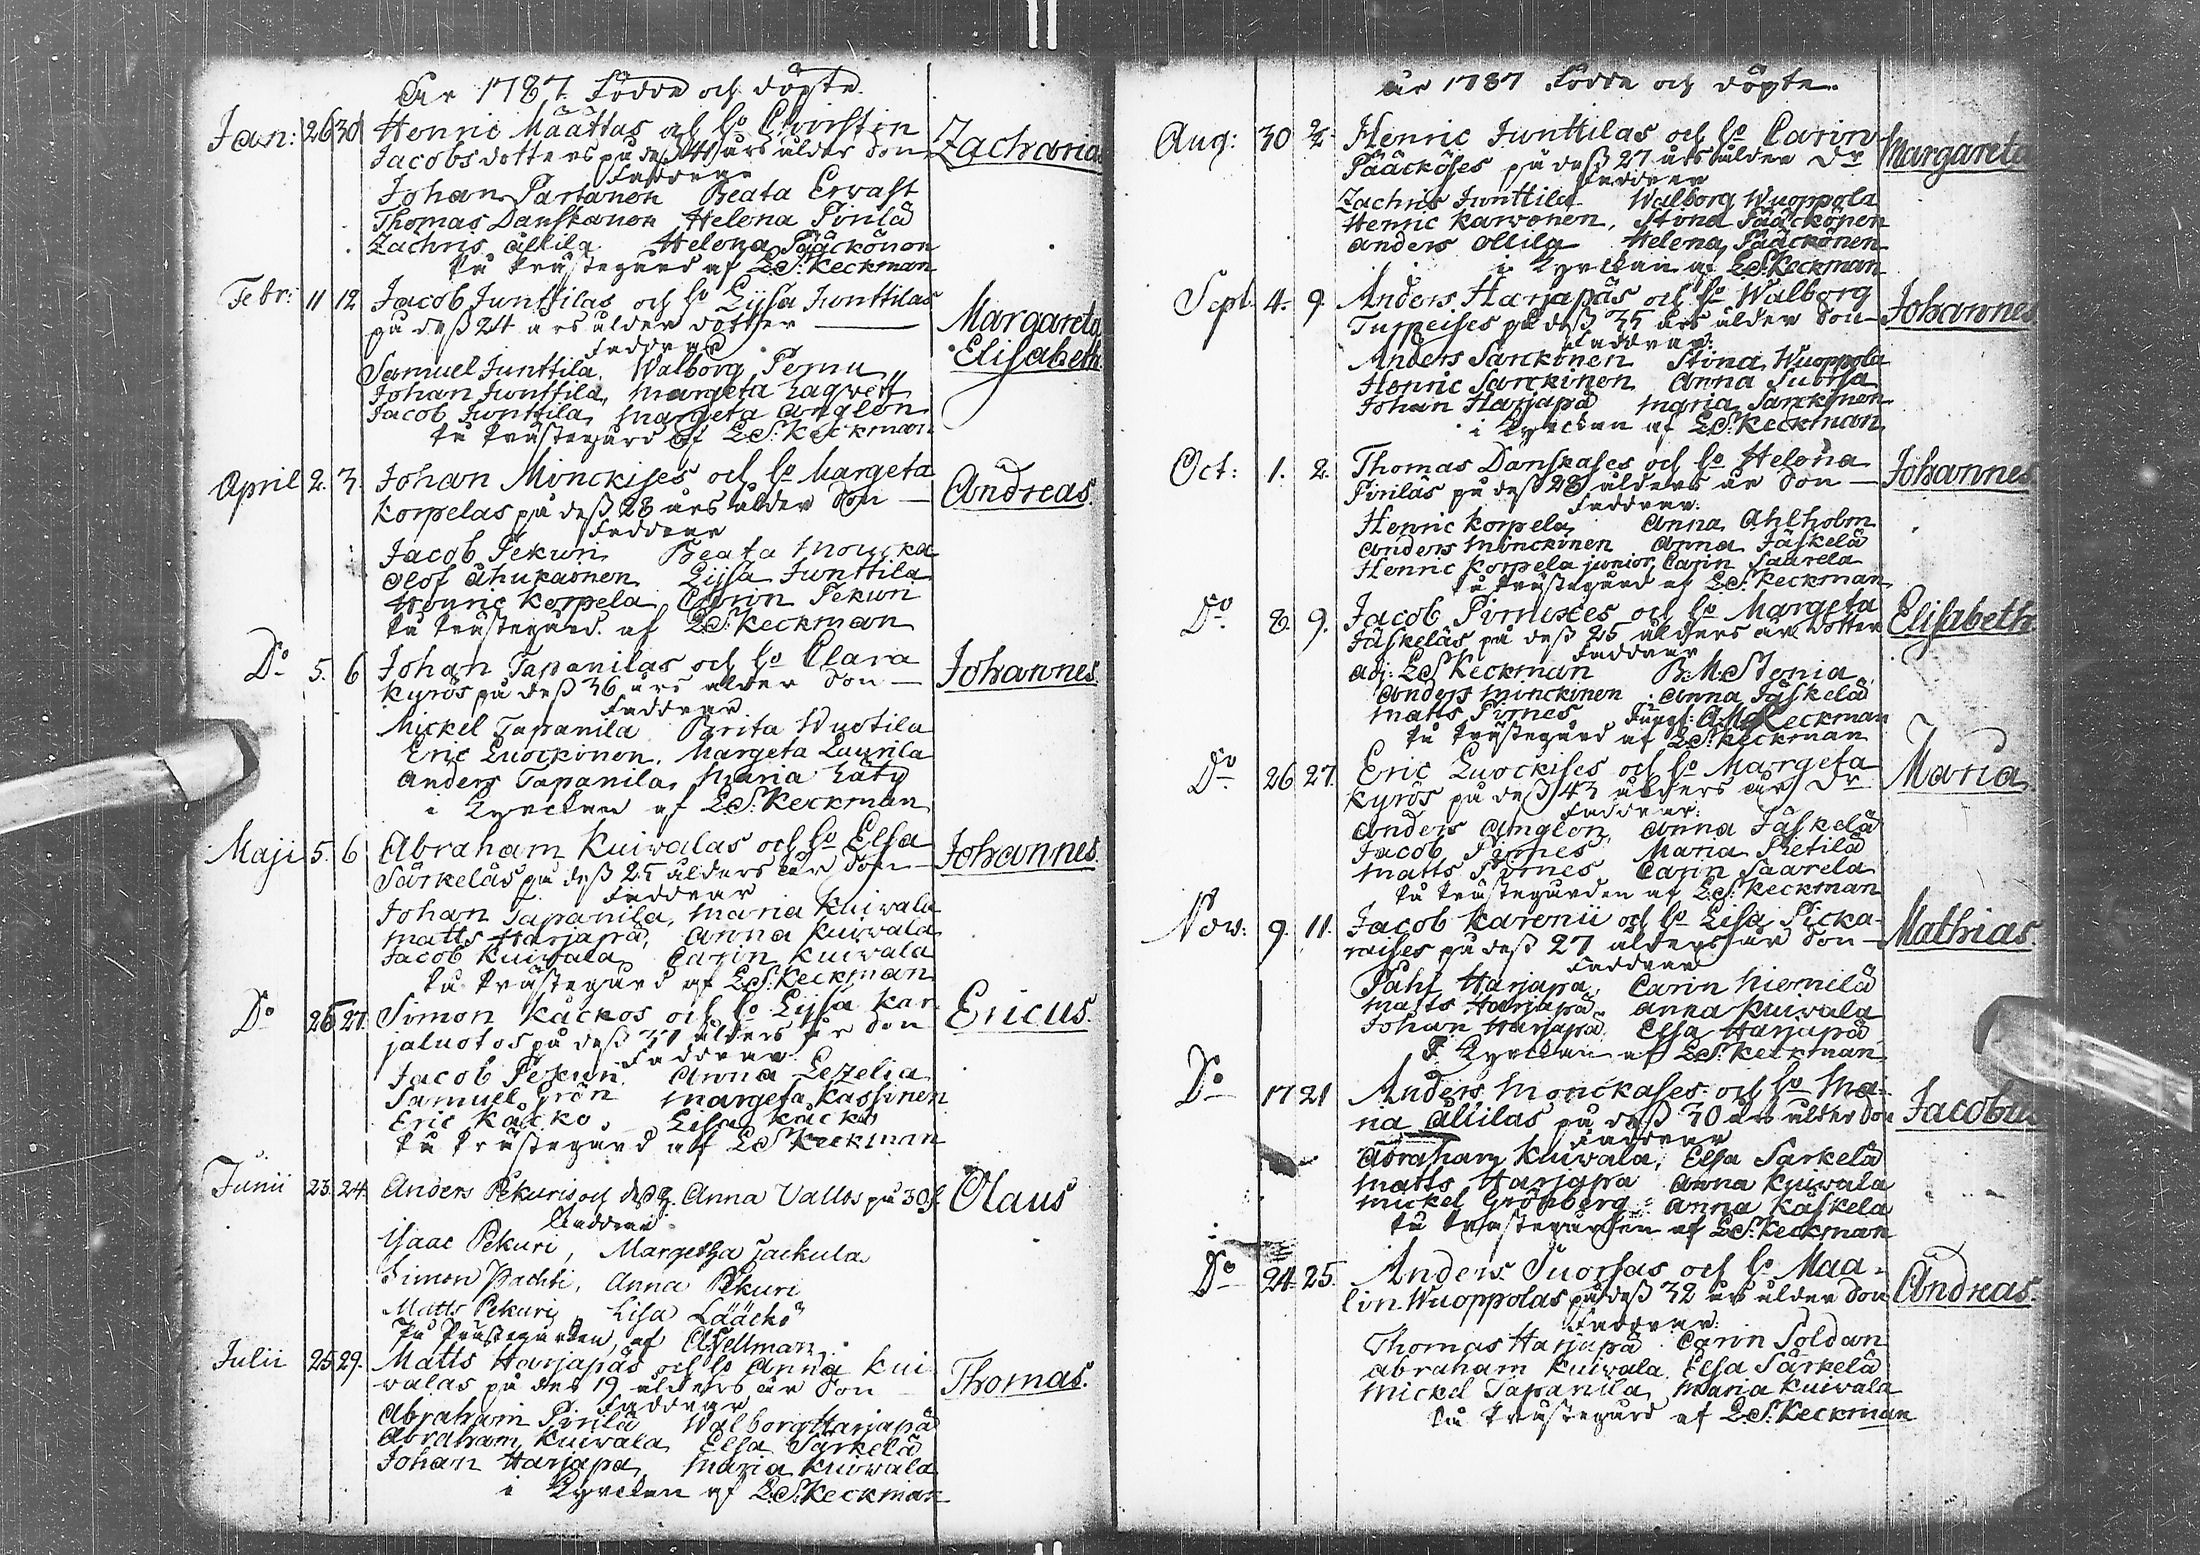 År 1787. Födde och döpte.
Jan: 26 30 Henric Määttas och h:o Christin Zacharias
Jacobsdotters på deß 41 års ålder Son
Faddrar
Johan Partanen Beata Ervast
Thomas Danskanen Helena Pirilä
Zachris Alkila Helena Pääckönen
På Prästegård af E.S. Keckman
Febr: 11 12 Jacob Junttilas och h:o Lijsa Junttilas Margareta
på deß 24 års ålder dotter Elisabeth
Faddrar
Samuel Junttila. Walborg Pernu
Johan Junttila, Margeta Lagvett
Jacob Junttila, Margeta Anglon
På Prästegård af E.S. Keckman
April 2. 3. Johan Minckises och h:o Margeta Andreas.
Korpelas på deß 28 års ålder Son
Faddrar
Jacob Pekuri Beata Mourka
Olof Ahukainen Lijsa Junttila
Henric Korpela Carin Pekuri
På Prästegård. af E.S. Keckman
D:o 5. 6 Johan Tapanilas och h:o Clara Johannes.
Kyrös på deß 36 års ålder Son
Faddrar
Mickel Tapanila Brita Wuotila
Eric Luockinen, Margeta Laurila
Anders Tapanila, Maria Läty
i Kyrckan af E.S. Keckman
Maji 5. 6 Abraham Kuivalas och h:o Elsa Johannes.
Särkeläs på deß 25 ålders år Son
Faddrar
Johan Tapanila, Maria Kuivala
Matts Harjapä, Anna Kuivala
Jacob Kuivala Carin Kuivala
På Prästegård af E.S. Keckman
D:o 26 27. Simon Käckos och h:o Lijsa Kar- Ericus.
jaluotos på deß 31 ålders år Son
Faddrar
Jacob Pekuri Anna Lezelia
Samuel Grön Margeta Kassinen
Eric Käcko. Lisa Käcko
På Prästegård af E.S. Keckman
Junii 23. 24. Anders Pekuris och deß h. Anna Vallos på 30 Olaus
faddrar
Isaac Pekuri, Margetha Jackula
Simon Pachti, Anna Pekuri
Matts Pekuri, Lisa Lääckö
På Prästegården, af A. Fellman.
Julii 25 29. Matts Harjapäs och h:o Anna Kui- Thomas.
valas på des 19 ålders år Son
Faddrar
Abraham Pirilä Walborg Harjapä
Abraham Kuivala Elsa Särkelä
Johan Harjapä, Maria Kuivala
i Kyrckan af E.S. Keckman
År 1787 Födde och döpte.
Aug: 30 2/. Henric Junttilas och h:o Carin Margareta
Pääcköses på deß 27 års ålder Dr
Faddrar
Zachris Junttila Walborg Wuoppola
Henric Karvonen, Stina Pääckönen
Anders Ollila Helena Pääckönen
i Kyrckan af E.S. Keckman
Sept. 4. 9. Anders Harjapäs och h:o Walborg Johannes.
Turpeises på deß 35 års ålder Son
Faddrar:
Anders Sarckinen Stina Wuoppola
Henric Sarckinen Anna Suorsa
Johan Harjapä Maria Sarckinen
i Kyrckan af E.S. Keckman
Oct: 1. 2. Thomas Danskases och h:o Helena Johannes.
Piriläs på deß 28 ålders år Son
Faddrar.
Henric Korpela Anna Ahlholm
Anders Minckinen Anna Jäskelä
Henric Korpela junior, Carin Saarela
På Prästegård af E.S. Keckman
D:o 8. 9. Jacob Pirnexes och h:o Margeta Elisabeth
Jäskeläs på deß 25 ålders år Dotter
Faddrar
Adj: E.S Keckman B:M: Stenia
Anders Minckinen Anna Jäskelä
Matts Pirnes Jungf: A.M. Keckman
På Prästegård af E.S. Keckman
D:o 26 27. Eric Luockises och h:o Margeta Maria
Kyrös på deß 43 ålders år Dr
Faddrar:
Anders Anglon, Anna Jäskelä
Jacob Pirnes Maria Pietilä
Matts Pirnes Carin Saarela
På Prästegården af E.S. Keckman
Nov: 9. 11. Jacob Karenii och h:o Lisa Picka- Mathias.
raises på deß 27 ålders år Son
Faddrar
Påhl Harjapä, Carin Niemilä
Matts Harjapä Anna Kuivala
Johan Harjapä Elsa Harjapä
I Kyrckan af E.S. Keckman
D:o 17 21 Anders Monckases och h:o Ma- Jacobus
ria Allilas på deß 30 års ålder Son
Faddrar
Abraham Kuivala, Elsa Särkelä
Matts Harjapä Anna Kuivala
Mickel Grönberg Anna Käskelä
På Prästegården af E.S. Keckman
D:o 24 25. Anders Suorsas och h:o Maa- Andreas.
lin Wuoppolas på deß 32 års ålder Son
Faddrar.
Thomas Harjapä Carin Soldan
Abraham Kuivala. Elsa Särkelä
Mickel Tapanila Maria Kuivala
På Prästegård af E.S. Keckman